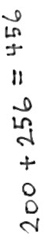 200 + 256 = 456